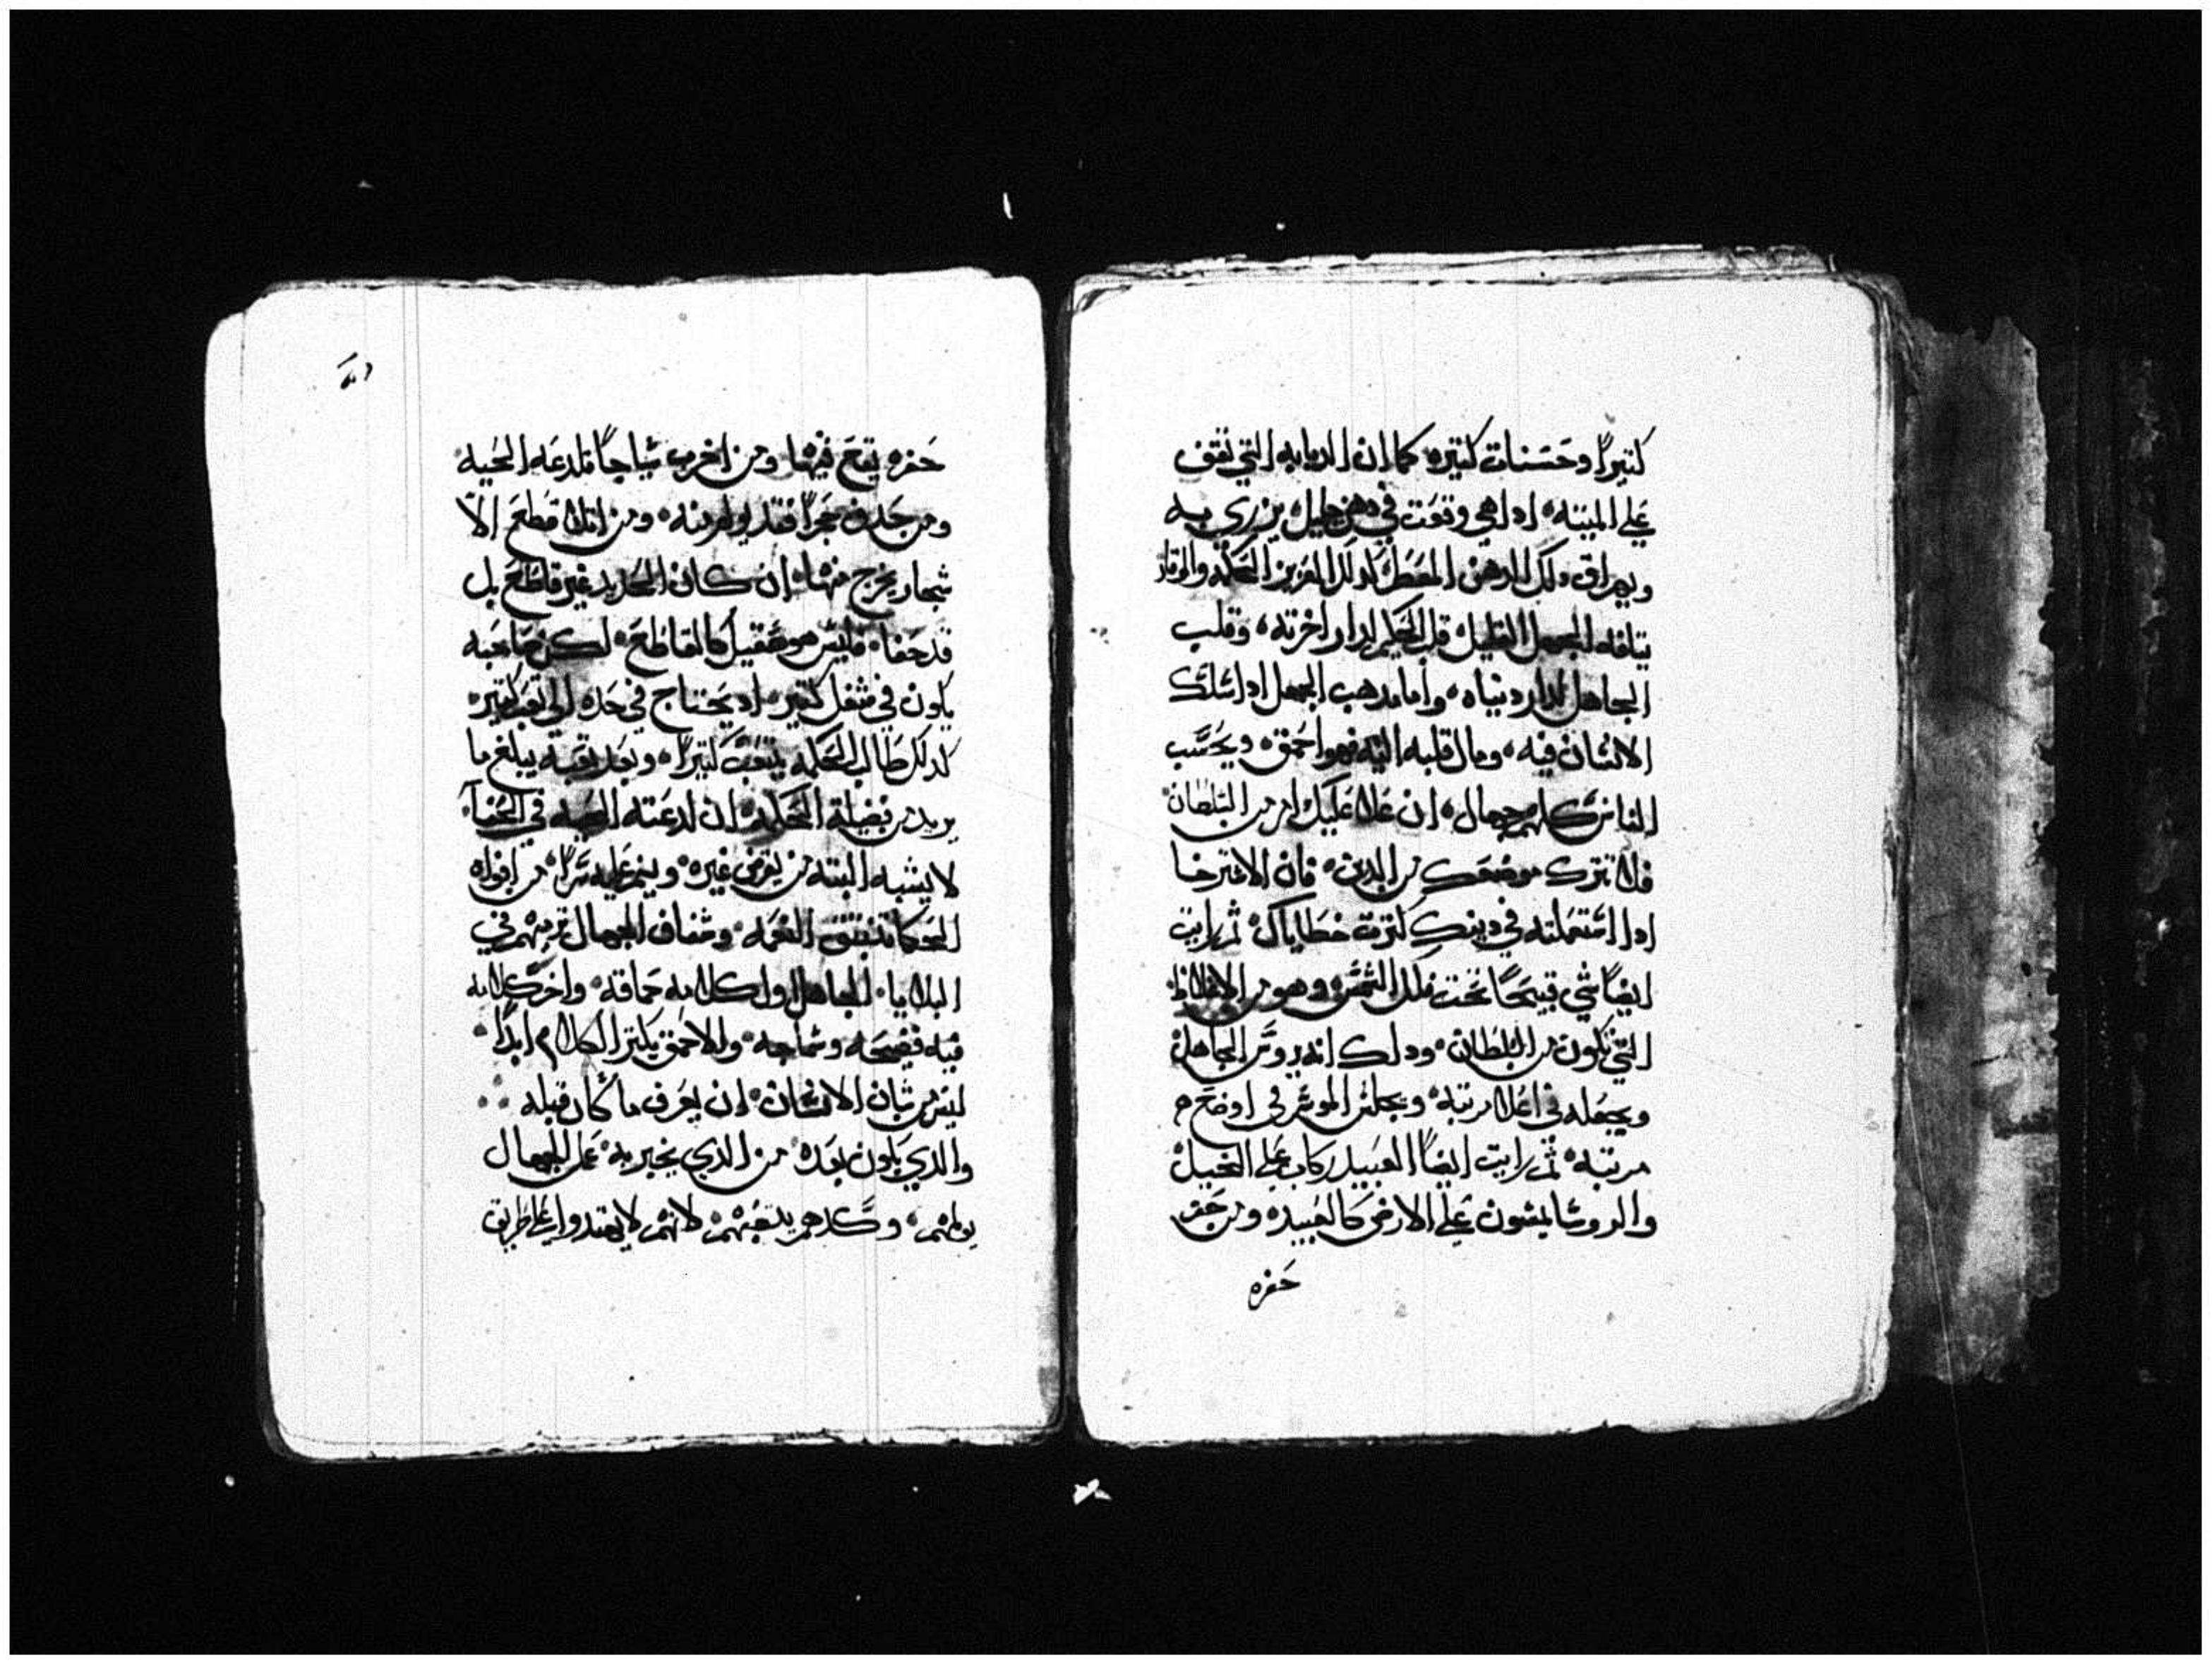 كتيراً وحسنات كتيره كما ان الدبابه التي تقف
علي الميته اداهي وقعت في دهن جليل يزري به
ويهراق دلك الدهن المعطر كدلك العزيز الحكمه والوقار
يتلفه الجهل القليل قلب الحكيم لدار اخرته وقلب
الجاهل لدار دنياه واما مدهب الجهل ادا سلك
الانسان فيه ومال قلبه اليه فهو احمق ويحسب
الناس كلهم جهال ان علا عليك امر من السلطان
فلا تترك موضعك من الدين فان الاسترخا
ادا استعملته في دينك كترت خطاياك ثم رايت
ايضاً شي قبيحاً تحت فلك الشمس وهو من الالفاظ
التي تكون من السلطان ودلك انه يروس الجاهل
ويجعله في اعلا مرتبة ويجلس الموسر في اوضح
مرتبة ثم رايت ايضاً العبيد ركاب علي الخيل
والروسا يمشون علي الارض كالعبيد ومن حفر
حفره
حفره يقع فيها ومن اخرب سياجاً تلدغه الحيه
ومن حدف حجراً فقد يولم منه ومن اتلا قطع الا
شجار يخرج منها ان كان الحديد غير قاطع بل
قد حفا فليس هو صقيل كالقاطع لكن صاحبه
يكون في شغل كتير اد يحتاج في حده الي تعب كتير
كدلك طالب الحكمه يتعب كتيراً وبعد تعبه يبلغ ما
يريد من فضيلة الحكمه ان لدغته الحيه في الخفا
لا يشبه البته من يقرض غيره وينم عليه سراً من افواه
الحكما تنبثق النعمه وشفاف الجهال ترميهم في
البلايا الجاهل اول كلامه حماقه واخر كلامه
فيه فضيحه وسماجه والاحمق يكتر الكلام ابداً
ليس من شان الانسان ان يعرف ما كان قبله
والدي يكون بعده من الدي يخبر به عمل الجهال
يولمهم وكدهم يتعبهم لانهم لا يهتدوا الي طريق